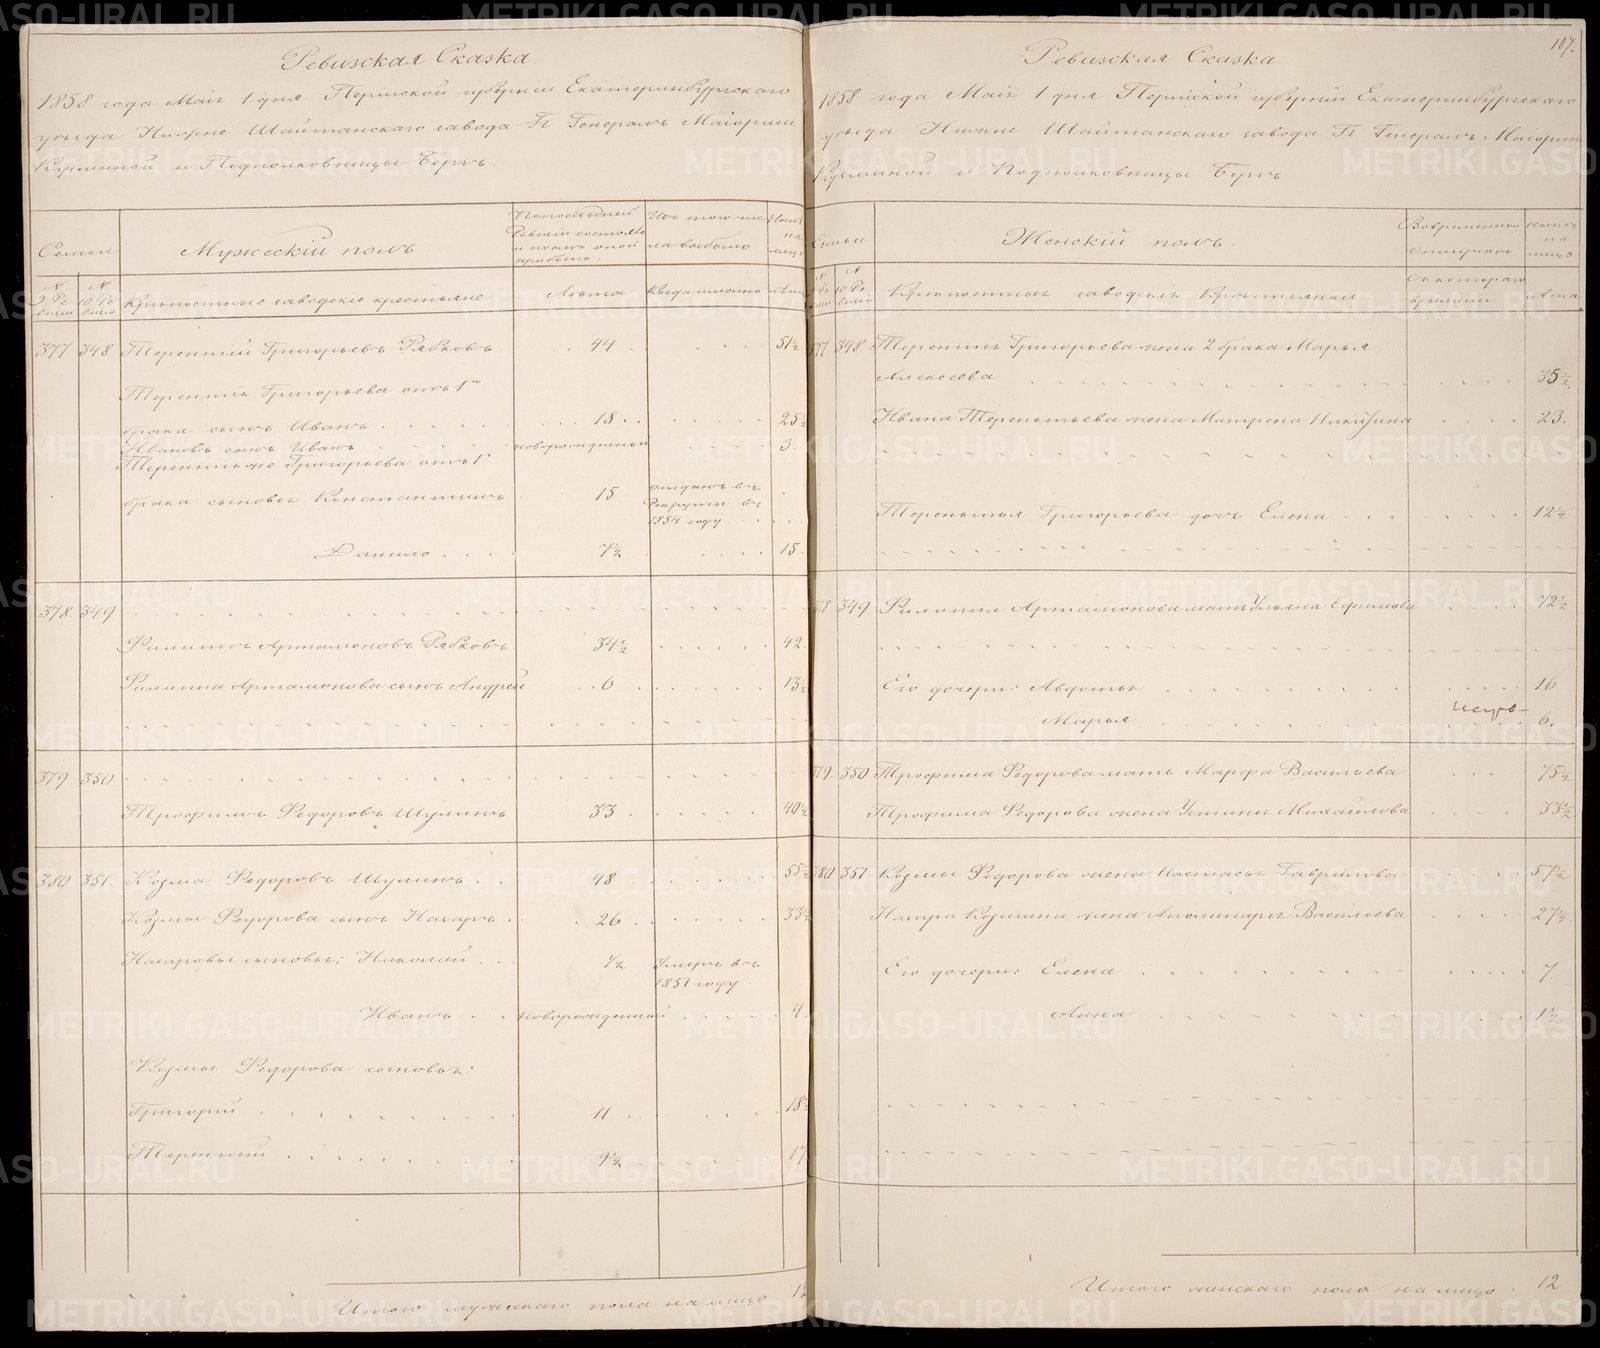 Ревизская Сказка
1858 года Маія 1 дня Пермской губерніи Екатеринбургскаго
уѣзда Нижне Шайтанскаго завода Гг Генералъ Маіорши
Кузминой и Подполковницы Бергъ.
Семьи
Мужескій полъ
По последней Ревизіи состояло и послѣ оной прибыло
Изъ того числа выбыло
Ныне на лицо
№ 9 Ревизіи
№ 10 Ревизіи
Крѣпостные заводскіе крестьяне
Лѣта
Когда именно
Лѣта
377 348 Терентій Григорьевъ Рябковъ 44 51½
Терентія Григорьева отъ 1го
брака сынъ Иванъ 18 25½
Ивановъ сынъ Иванъ новорожденный 3
Терентія же Григорьева отъ 1го
брака сыновья Константинъ 15 отданъ въ Рекруты въ 1854 году
Данило 7½ 15
378 349
Филиппъ Артамоновъ Рябковъ 34½ 42
Филиппа Артамонова сынъ Андрей 6 13½
379 350
Трофимъ Федоровъ Шулинъ 33 40½
380 351 Козма Федоровъ Шулинъ 48 55½
Козмы Федорова сынъ Назаръ 26 33½
Назаровы сыновья: Николай ½ Умеръ въ 1851 году
Иванъ новорожденный 4
Козмы Федорова сыновья:
Григорій 11 18½
Терентій 9½ 17
Итого мужескаго пола на лицо
107.
Ревизская Сказка
1858 года Маія 1 дня Пермской губерніи Екатеринбургскаго
уѣзда Нижне Шайтанскаго завода Гг Генералъ Маіорши
Кузминой и Подполковницы Бергъ
Семьи
Женскій полъ
Во временной отлучкѣ
Ныне на лицо
№ 9 Ревизіи
№ 10 Ревизіи
Крѣпостныя заводскія Крестьянки
Съ котораго времени
Лѣта
377 348 Терентія Григорьева жена 2 брака Марья
Алексеева 35½
Ивана Терентьева жена Матрена Никитина 23.
Терентья Григорьева дочь Елена 12½
378 349 Филиппа Артамонова мать Ульяна Ефимова 72½
Его дочери: Авдотья 16
Марья 6.
379 350 Трофима Федорова мать Марфа Васильева 75½
Трофима Федорова жена Устинья Михайлова 33½
380 351 Козмы Федорова жена Настасья Гаврилова 57½
Назара Козмина жена Аполинарья Васильева 27½
Его дочери: Елена 7
Анна 1½
Итого женскаго пола на лицо 12
METRIKI.GASO-URAL.RU